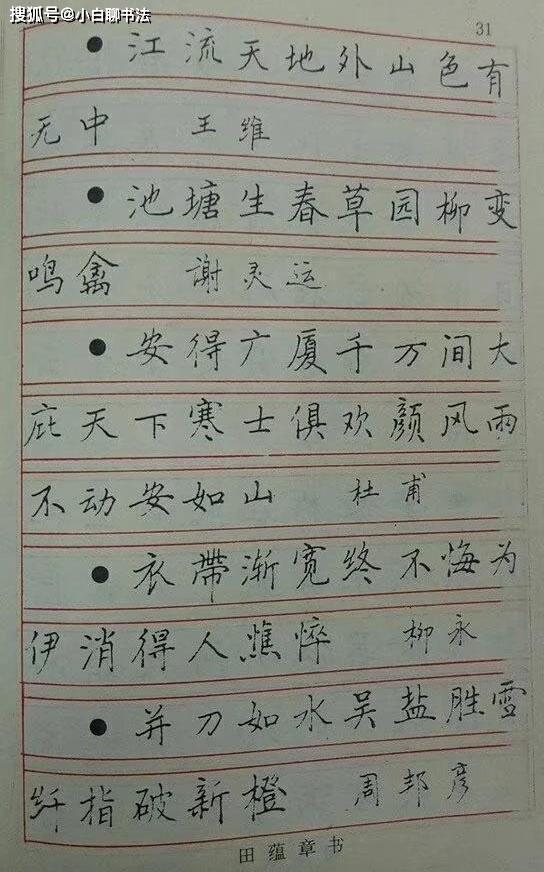 搜狐号@小白聊书法
31
●江流天地外山色有
无中 王维
●池塘生春草园柳变
鸣禽 谢灵运
●安得广厦千万间大
庇天下寒士俱欢颜风雨
不动安如山 杜甫
●衣带渐宽终不悔为
伊消得人憔悴 柳永
●并刀如水吴盐胜雪
纤指破新橙 周邦彦
田蕴章书